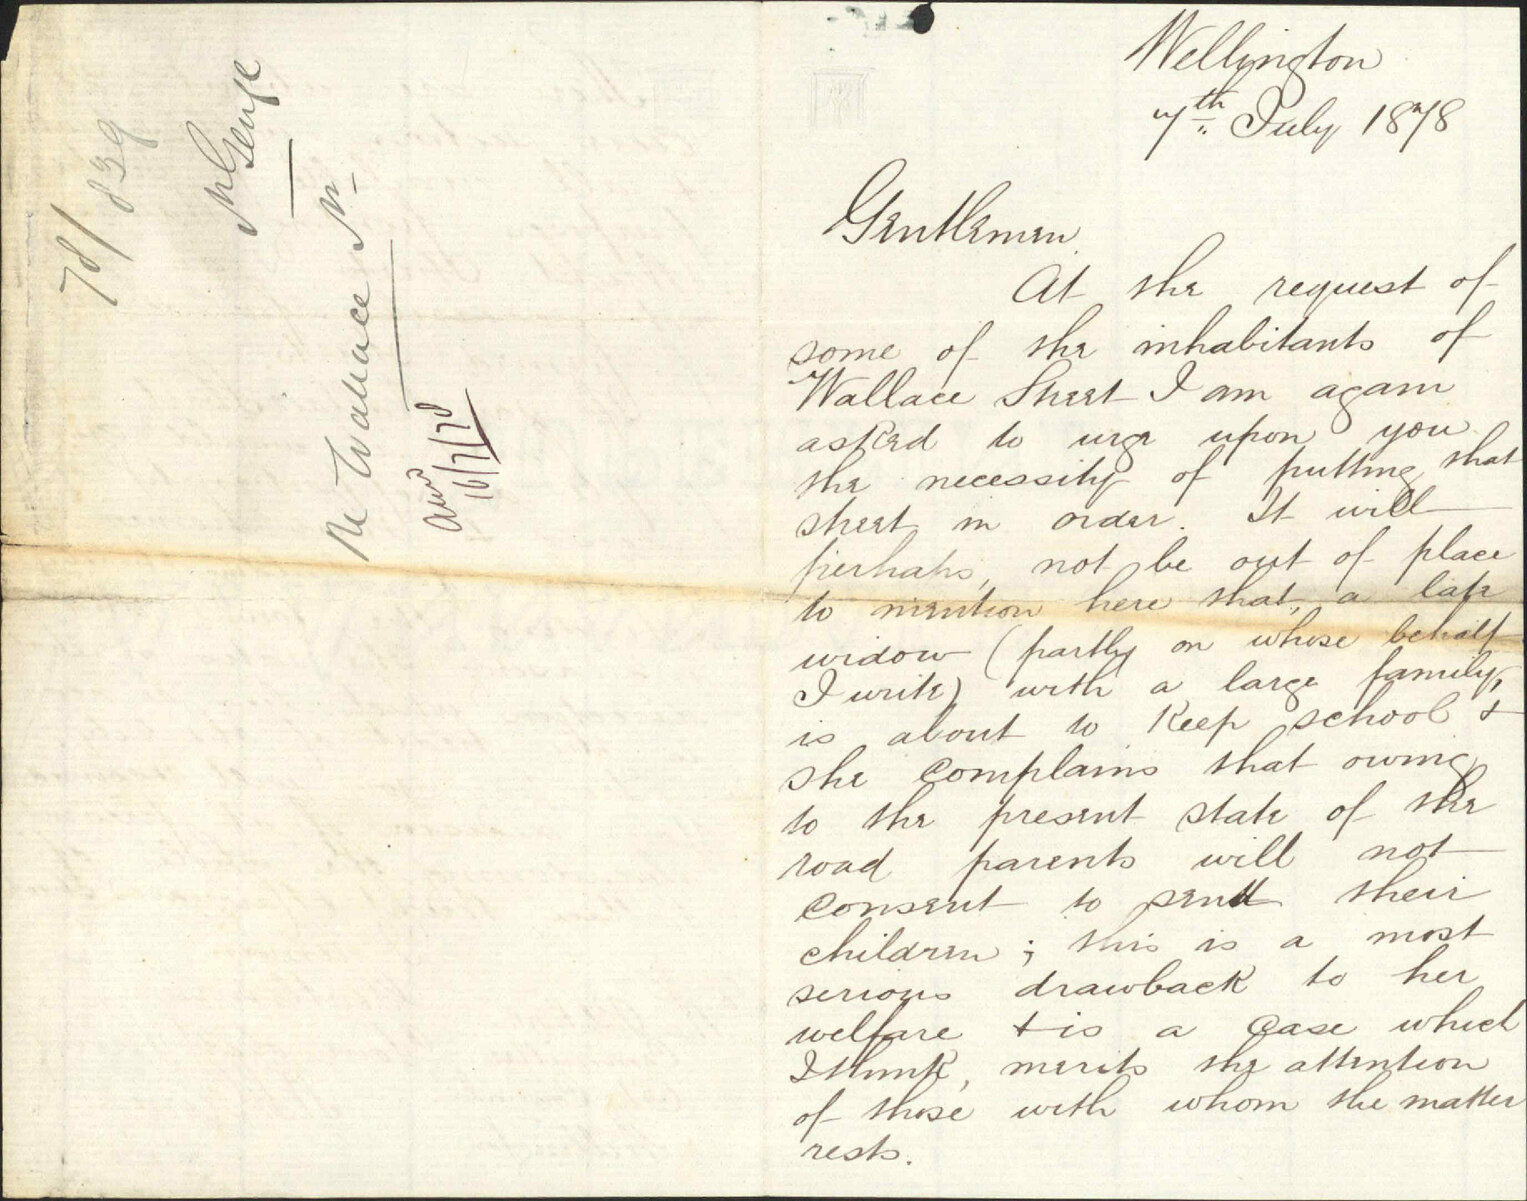 78/839
McGeorge
Re Wallace St
Ansd
16/7/78
Wellington
7th July 1878
Gentlemen
At the request of
some of the inhabitants of
Wallace Street I am again
asked to urge upon you
the necessity of putting that
street in order. It will
perhaps, not be out of place
to mention here that, a
widow (partly on whose behalf
I write) with a large family,
is about to keep school &
she complains that owing
to the present state of the
road parents will not
consent to send their
children; this is a most
serious drawback to her
welfare & is a case which
I think, merits the attention
of those with whom the matter
rests.